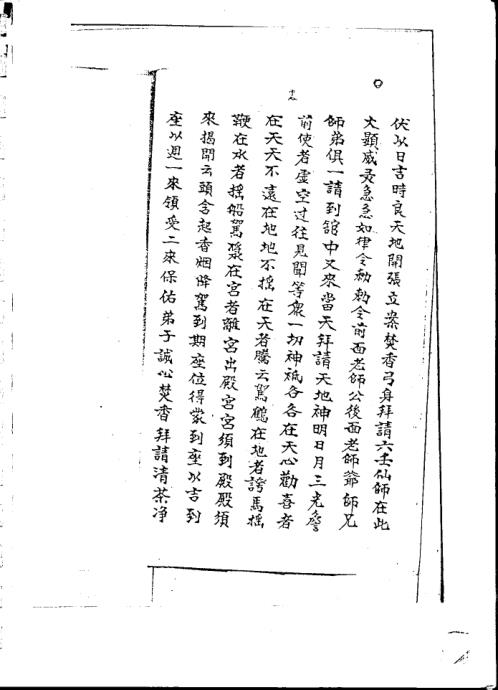 伏以日吉時良天地開張立案焚香弓身拜請六壬仙師在此
大顯威灵急急如律令勅勅令前面老師公後面老師爺師兄
師弟俱一請到舘中又來當天拜請天地神明日月三光簷
前使者虛空过往見聞等衆一切神祇各各在天心勸喜者
在天天不遠在地地不摇在天者騰云駕鶴在地者誇馬摇
鞭在水者摇船駕漿在宮者離宮出殿宮宮須到殿殿須
來揭開云頭含起香烟降駕到期座位得蒙到座以吉到
座以週一來領受二來保佑弟子誠心焚香拜請清茶净